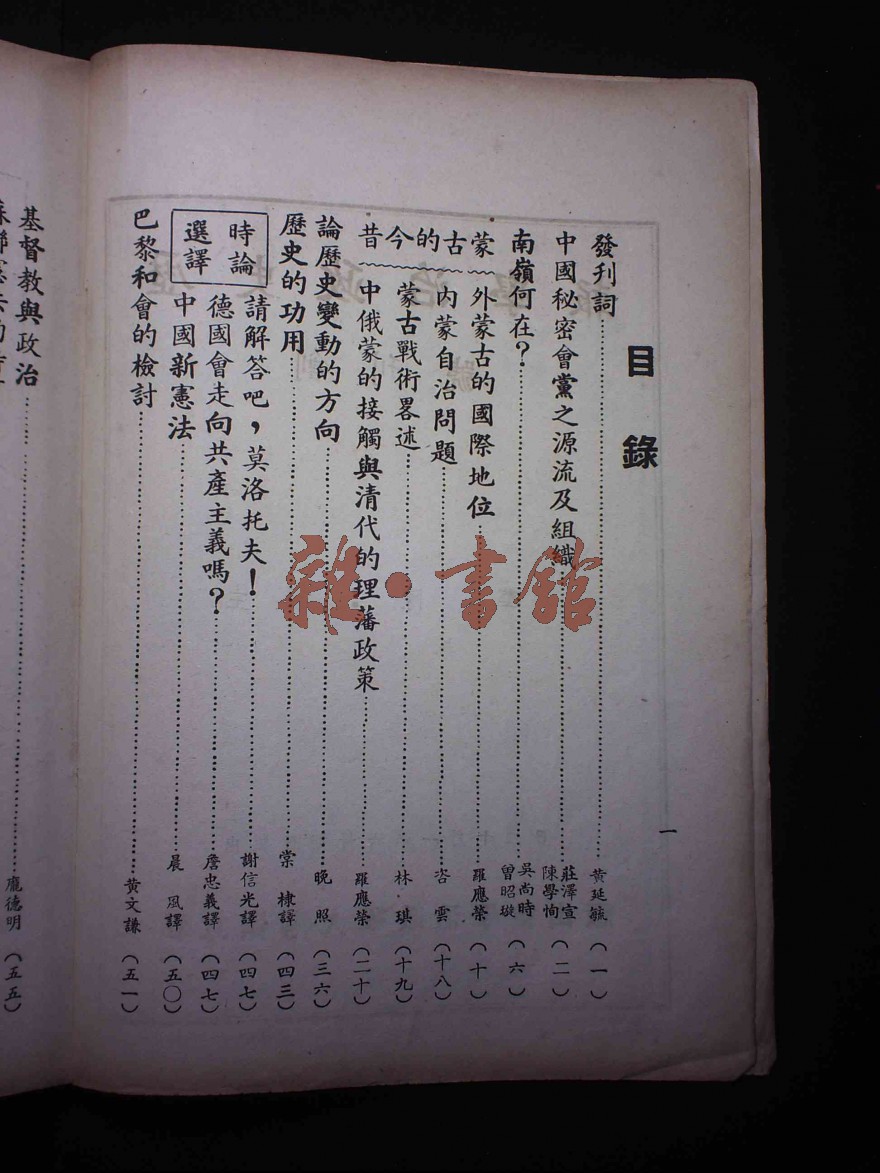 目錄
發刊詞……黃延毓(一)
中國秘密會黨之源流及組織……莊澤宣 陳學恂(二)
南嶺何在?……吳尚時 曾昭璇(六)
蒙古的今昔
外蒙古的國際地位……羅應榮(十)
內蒙自治問題……咨雲(十八)
蒙古戰術畧述……林琪(十九)
中俄蒙的接觸與清代的理藩政策……羅應榮(二十)
論歷史變動的方向……晚照(三六)
歷史的功用……棠棣譯(四三)
時論選譯
請解答吧,莫洛托夫!……謝信光譯(四七)
德國會走向共產主義嗎?……詹忠義譯(四七)
中國新憲法……晨風譯(五〇)
巴黎和會的檢討……黃文謙(五一)
基督教與政治……龐德明(五五)
一
雜·書館